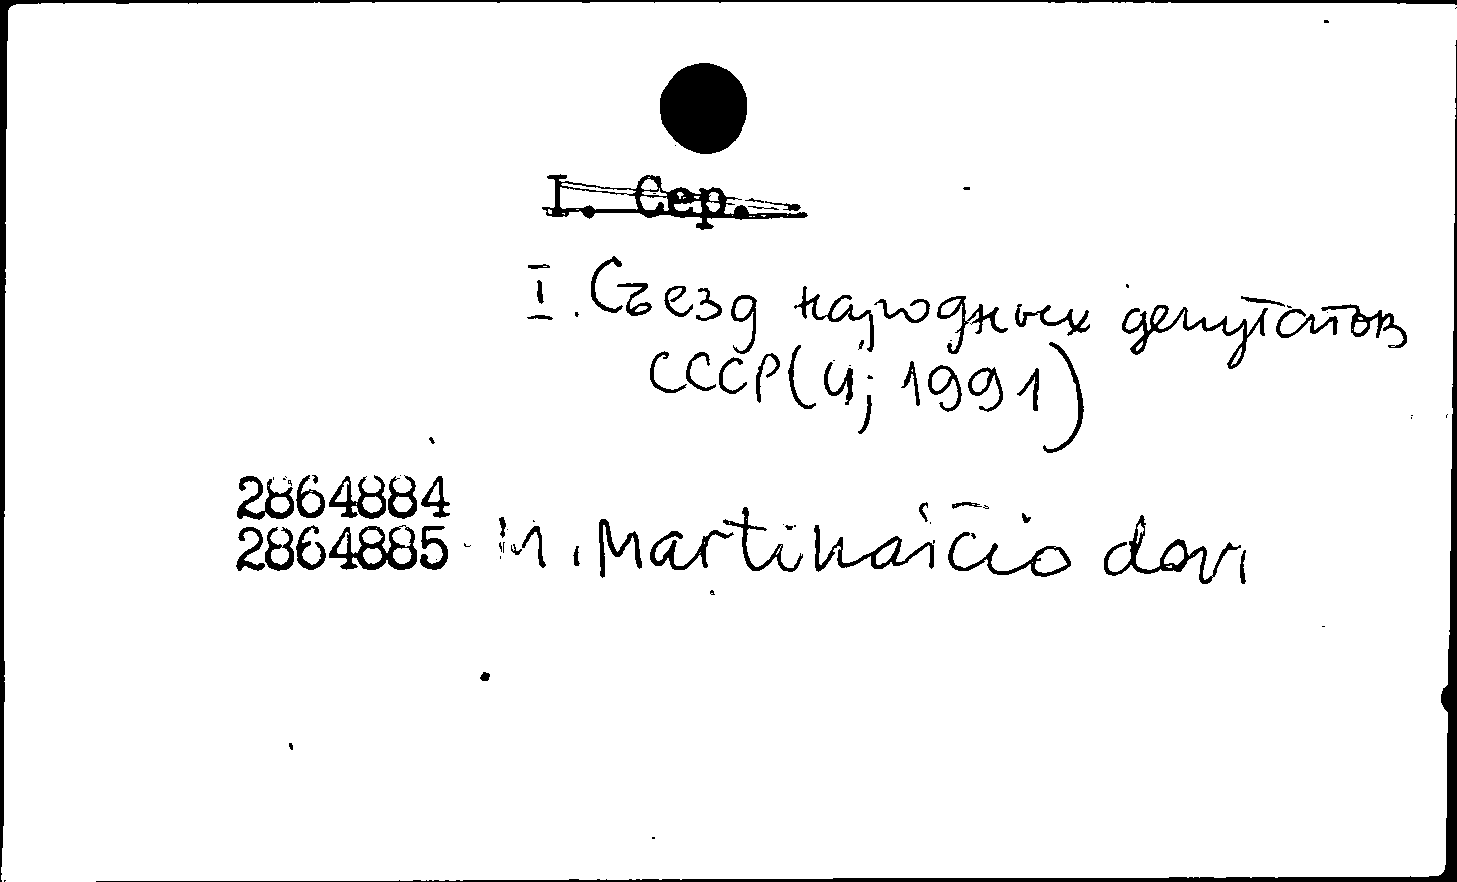 I. Сер.
I. Съезд народных депутатов
СССР (4; 1991)
2864884
2864885 M. Martinaičio dov.